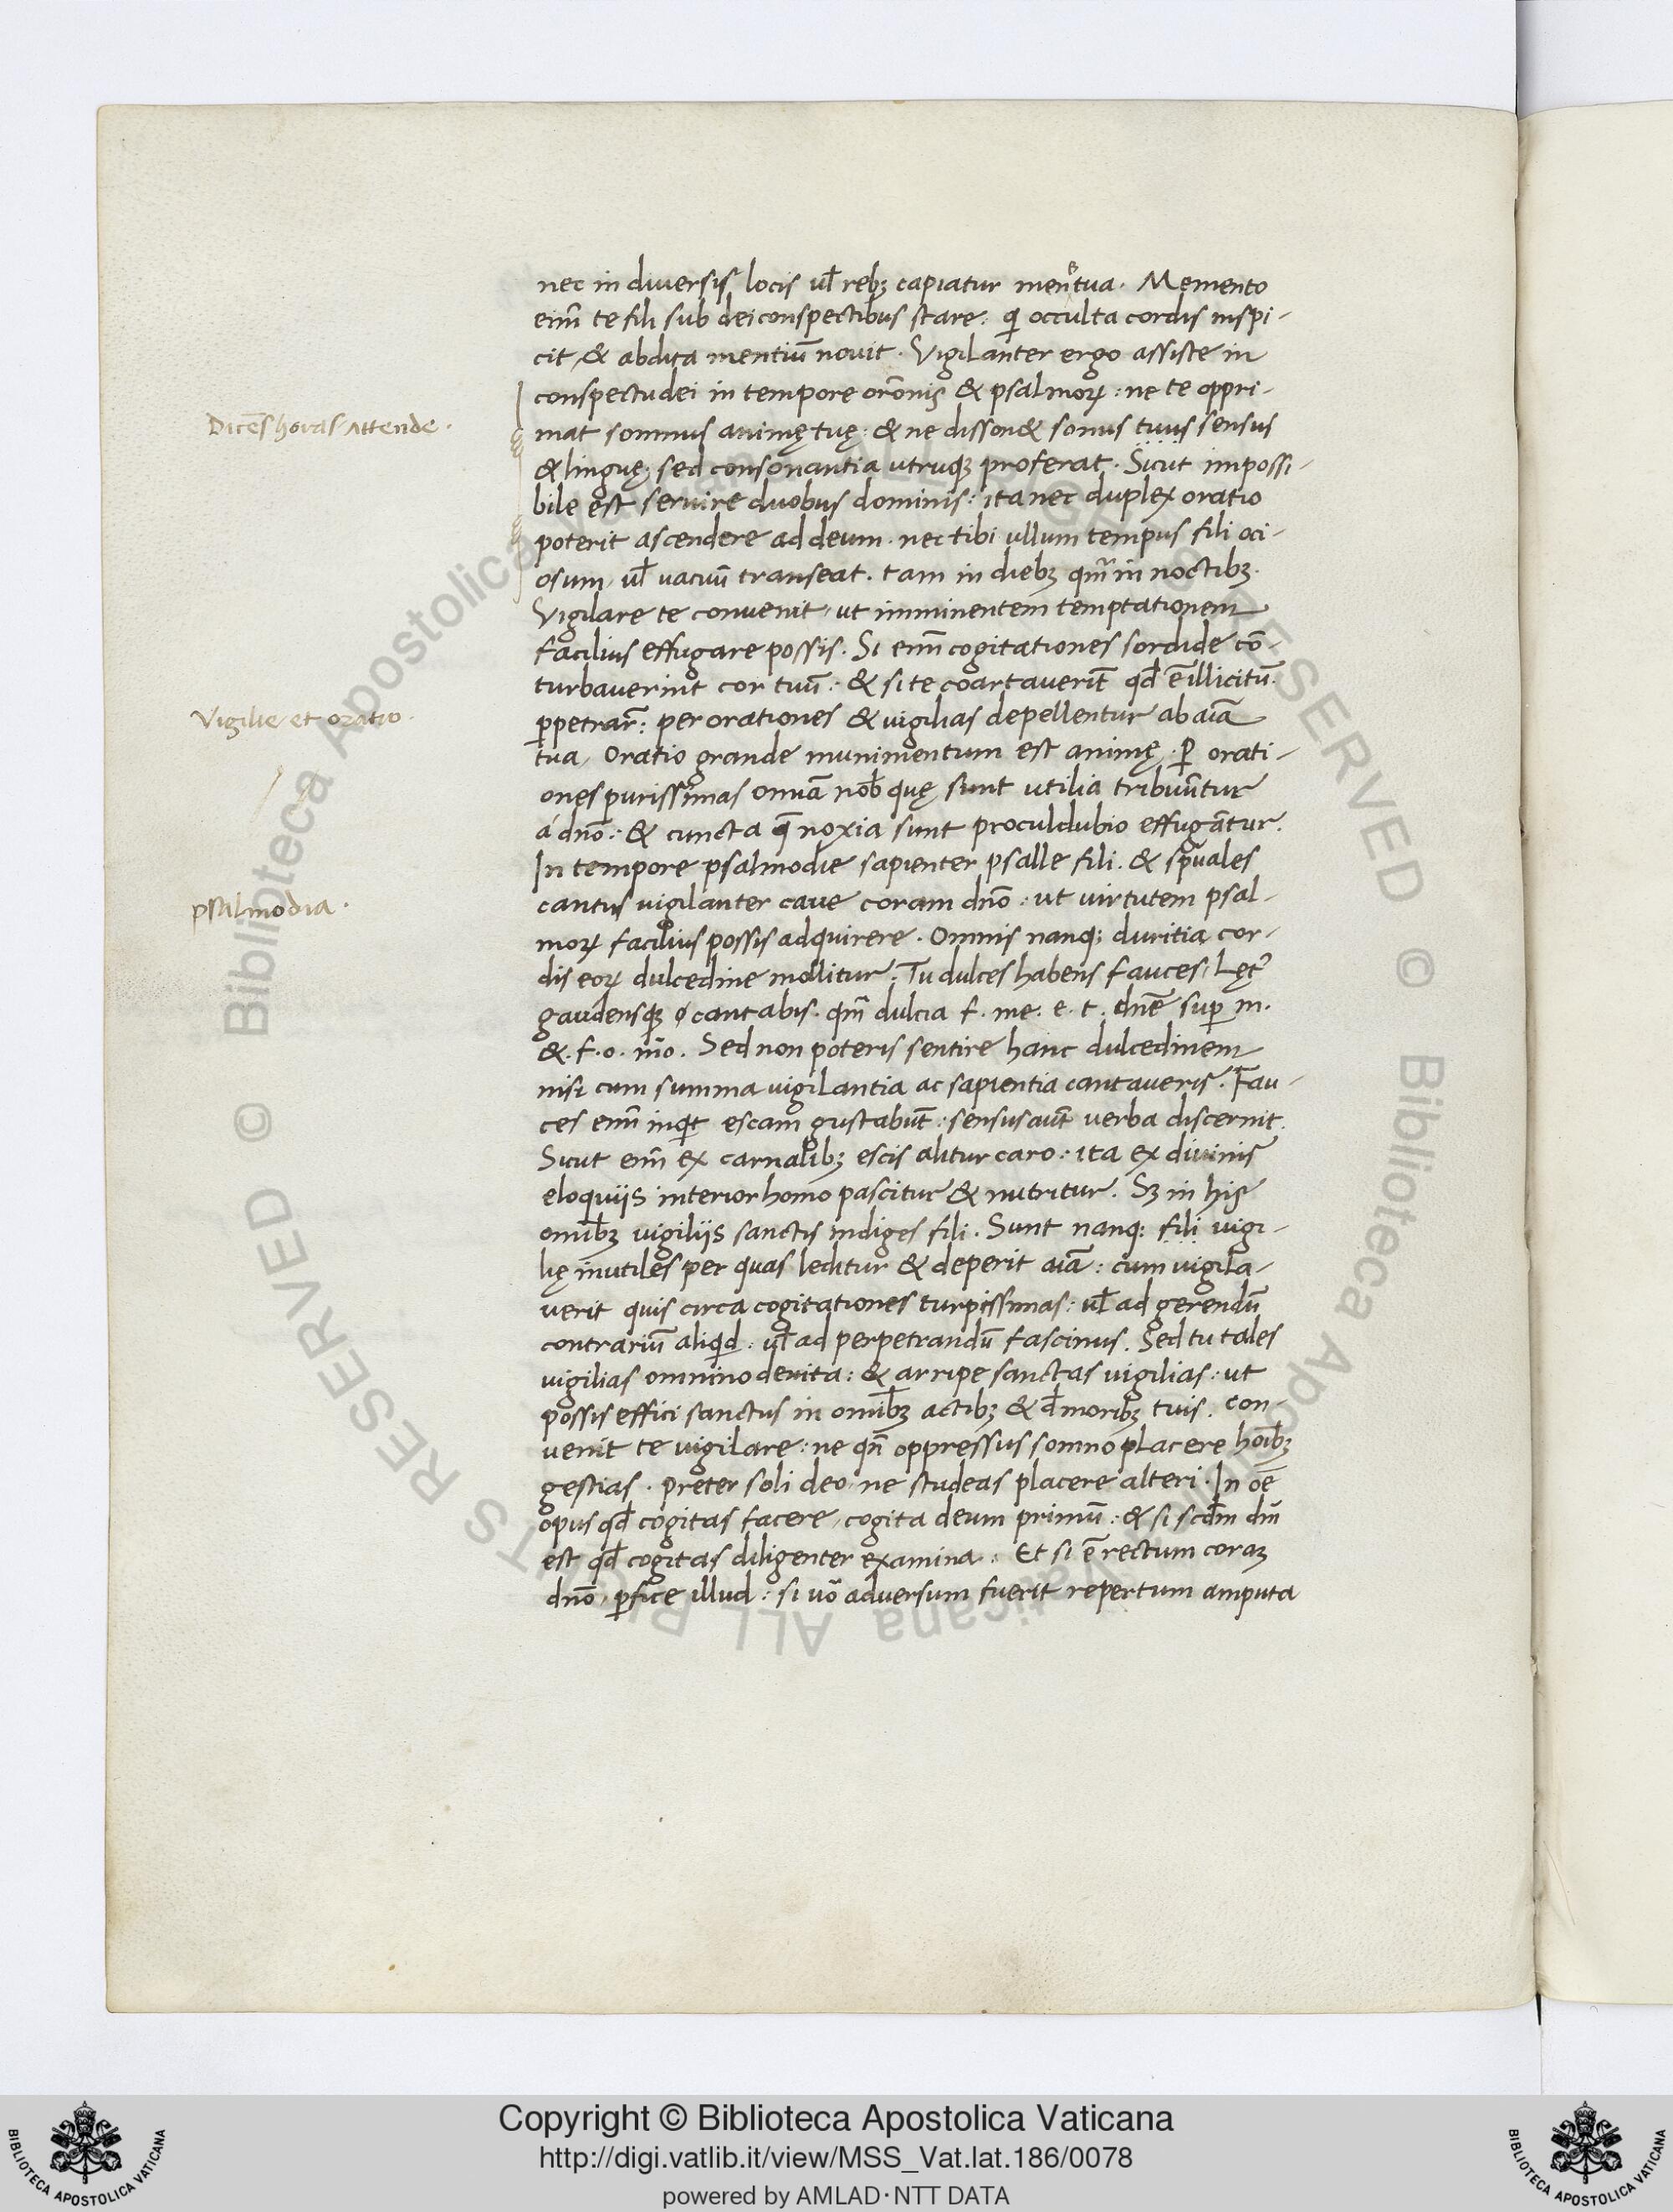 nec in diversis locis ul̄ rebꝫ capiatur mens tua. Memento
eim̄ te fili sub dei conspectibus stare: qi occulta cordis inspi-
cit, & abdita mentiū novit. Vigilanter ergo assiste in
conspectu dei in tempore orōnis & psalmoꝝ: ne te oppri-
Dicēs horas Attende.
mat somnus animę tuę: & ne disson& sonus tuus sensus
& linguę, sed consonantia utruqꝫ proferat. Sicut impossi-
bile est servire duobus dominis: ita nec duplex oratio
poterit ascendere ad deum. nec tibi ullum tempus fili oci-
osum, ul̄ vacuū transeat. tam in diebꝫ qm̄ in noctibꝫ.
Vigilare te convenit, ut imminentem temptationem
facilius effugare possis. Si enī cogitationes sordide cō-
turbaverint cor tuū: & si te coartaverīt qd̄ ē illicitū
Vigilie et oratio.
ꝑpetrar̄: per orationes & vigilias depellentur ab aīa
tua, Oratio grande munimentum est animę. P̄ orati-
ones purissimas omīa nob̄ quę sunt utilia tribuūntur
á dnō: & cuncta q̄ noxia sunt proculdubio effugātur.
In tempore psalmodie sapienter psalle fili. & sp̄uales
psalmodia.
cantus vigilanter cave coram dnō: ut virtutem psal-
moꝝ facilius possis adquirere. Omnis nanqꝫ duritia cor-
dis eoꝝ dulcedine mollitur. Tu dulces habens fauces, Lęt⁹
gaudensqꝫ cantabis. qm̄ dulcia f. me. e. t. dnē suꝑ m.
&. f. o. m̄o. Sed non poteris sentire hanc dulcedinem
nisi cum summa vigilantia ac sapientia cantaveris. Fau-
ces enī inqit escam gustabūt: sensus aūt verba discernit.
Sicut enī ex carnalibꝫ escis alitur caro: ita ex divinis
eloquiis interior homo pascitur & nutritur. Sꝫ in his
omībꝫ vigiliis sanctis indiges fili. Sunt nanqꝫ fili vigi-
lię inutiles per quas leditur & deperit aīa: cum vigila-
verit quis circa cogitationes turpissimas: ul̄ ad gerendū
contrariū aliqid: ul̄ ad perpetrandū fascinus. Sed tu tales
vigilias omnino devita: & arripe sanctas vigilias: ut
possis effici sanctus in omībꝫ actibꝫ & d̄ moribꝫ tuis. Con-
venit te vigilare: ne qn̄ oppressus somno placere hoībꝫ
gestias. preter soli deo, ne studeas placere alteri. In oē
opus qd̄ cogitas facere, cogita deum primū: & si scdm̄ dm̄
est qd̄ cogitas diligenter examina: Et si ē rectum coraꝫ
dnō, ꝑfice illud: si uō adversum fuerit repertum amputa
© Biblioteca Apostolica Vaticana ALL RIGHTS RESERVED
© Biblioteca Apostolica Vaticana ALL RIGHTS RESERVED
Copyright © Biblioteca Apostolica Vaticana
http://digi.vatlib.it/view/MSS_Vat.lat.186/0078
powered by AMLAD·NTT DATA
BIBLIOTECA APOSTOLICA VATICANA
BIBLIOTECA APOSTOLICA VATICANA